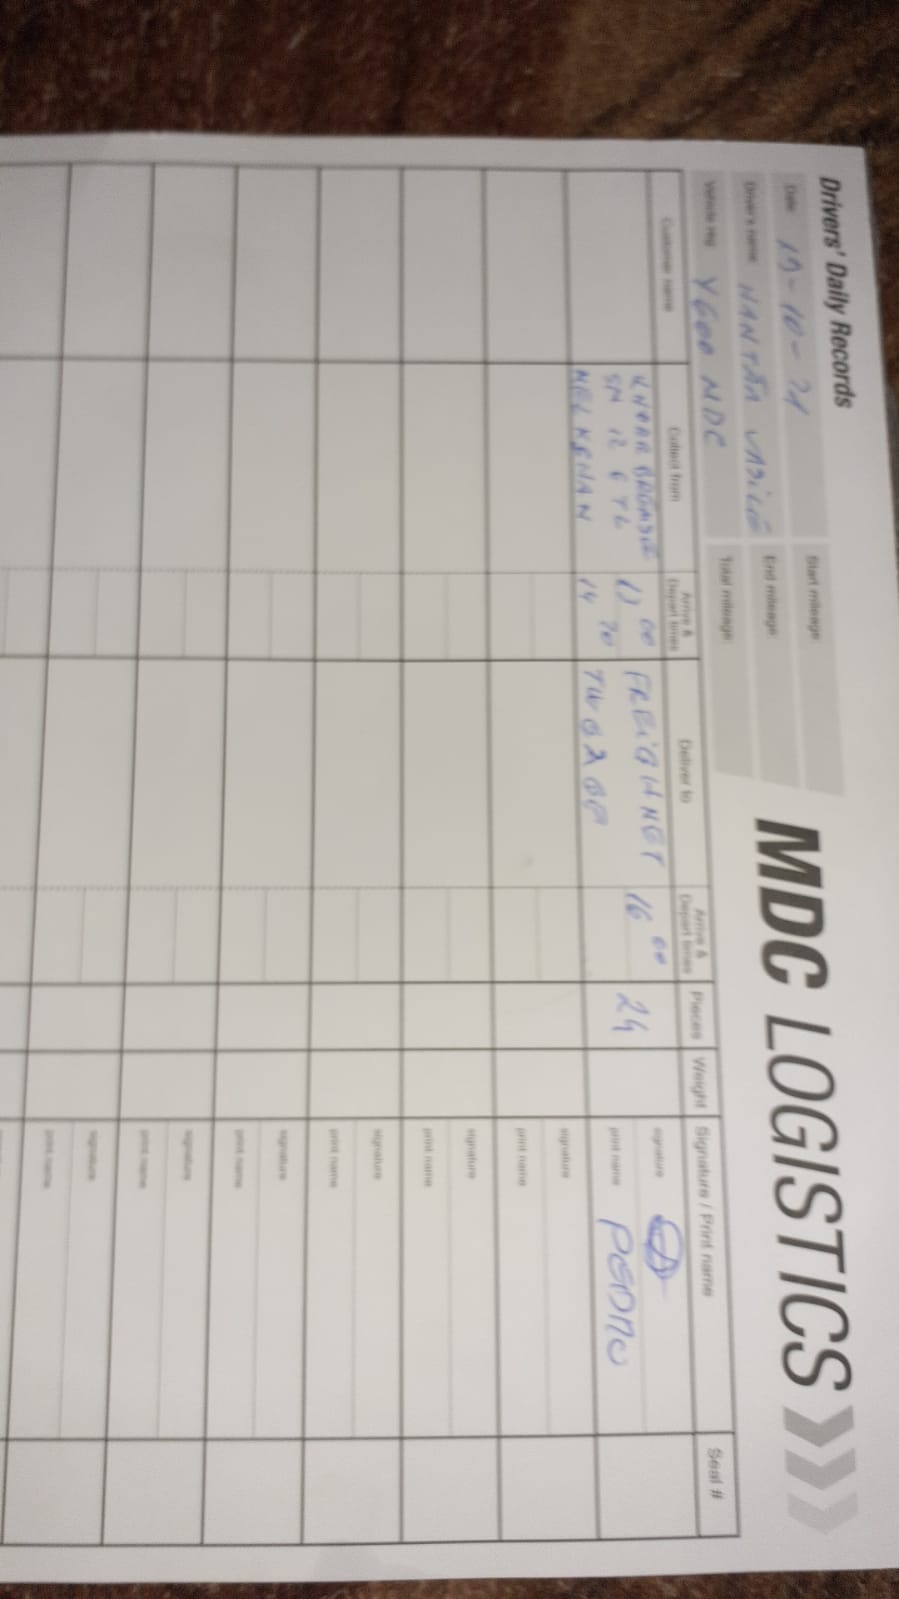 Drivers' Daily Records
MDC LOGISTICS
Date 19-10-21
Start mileage
Driver's name VASILE
End mileage
Vehicle reg YG00 MDC
Total mileage
Customer name
Collect from
Arrive & Depart times
Deliver to
Arrive & Depart times
Pieces
Weight
Signature / Print name
Seal #
KNORR BREMSE
SN 12 6 TL
MELKSHAM
13 00
14 20
FREIGHNET
TW6 2GP
16 00
24
signature
print name PEDRO
signature
print name
signature
print name
signature
print name
signature
print name
signature
print name
signature
print name